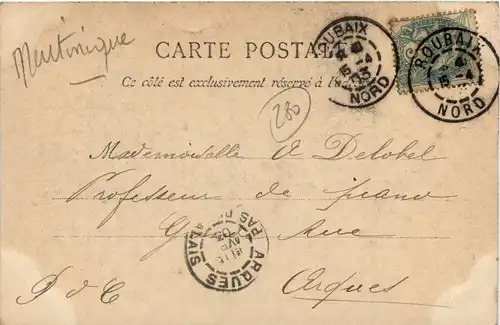 Martinique
CARTE POSTALE
Ce côté est exclusivement réservé à l'
280
ROUBAIX
15 -4
03
NORD
ROUBAIX
15 -4
NORD
Mademoiselle A Delobel
Professeur de piano
Rue
P d C
Arques
ARQUES
PAS DE CALAIS
AVR
03